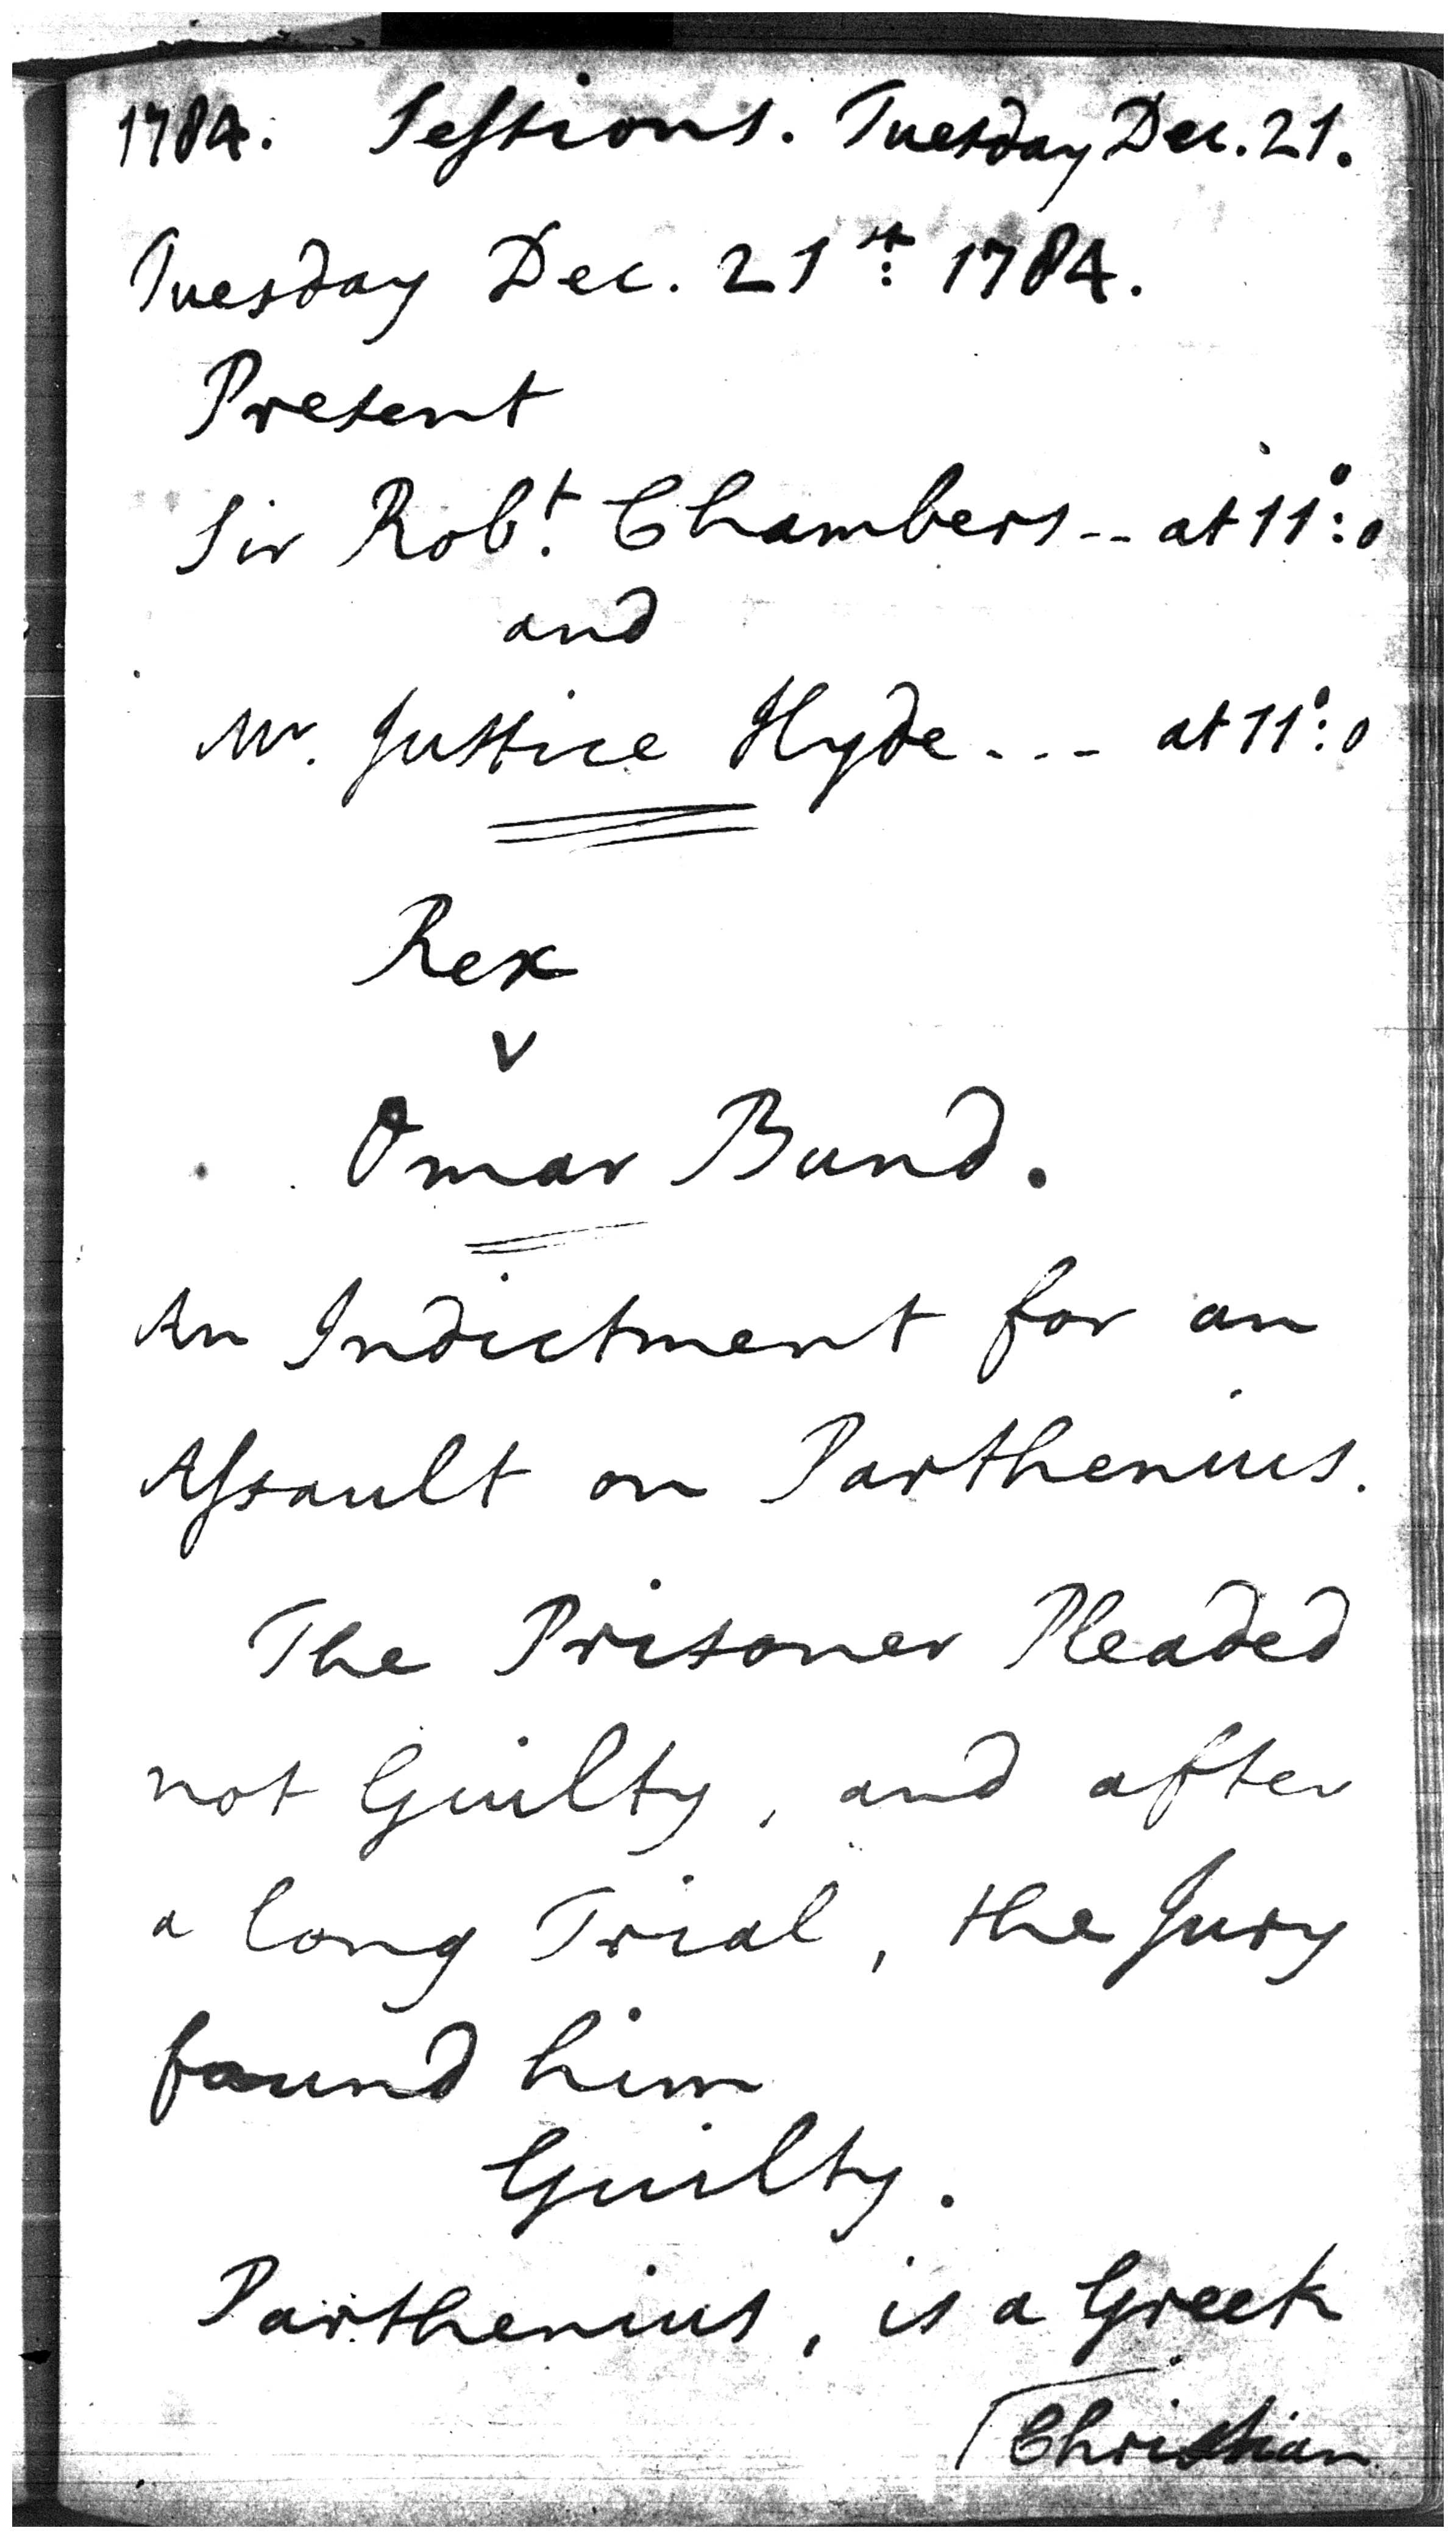 1784. Sessions. Tuesday Dec. 21.
Tuesday Dec. 21st: 1784.
Present
Sir Robt. Chambers -- at 11°: 0
and
Mr. Justice Hyde --- at 11°: 0
Rex
v
Omar Bund.
An Indictment for an
Assault on Parthenius.
The Prisoner Pleaded
not Guilty, and after
a long Trial, the Jury
found him
Guilty.
Parthenius, is a Greek
Christian